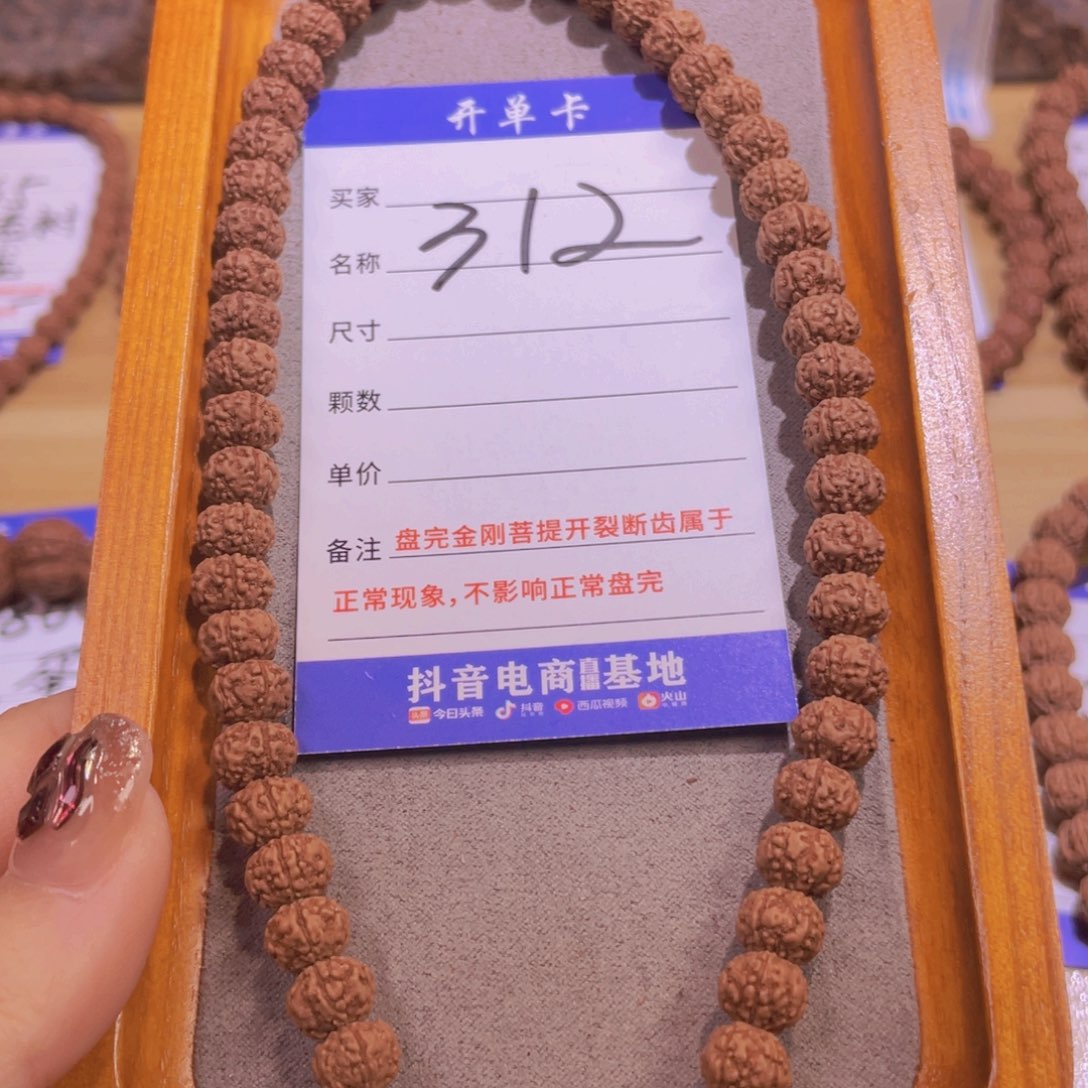 开单卡
买家
312
名称
尺寸
颗数
单价
备注 盘完金刚菩提开裂断齿属于
正常现象，不影响正常盘完
抖音电商直播基地
头条 今日头条 抖音 西瓜视频 火山